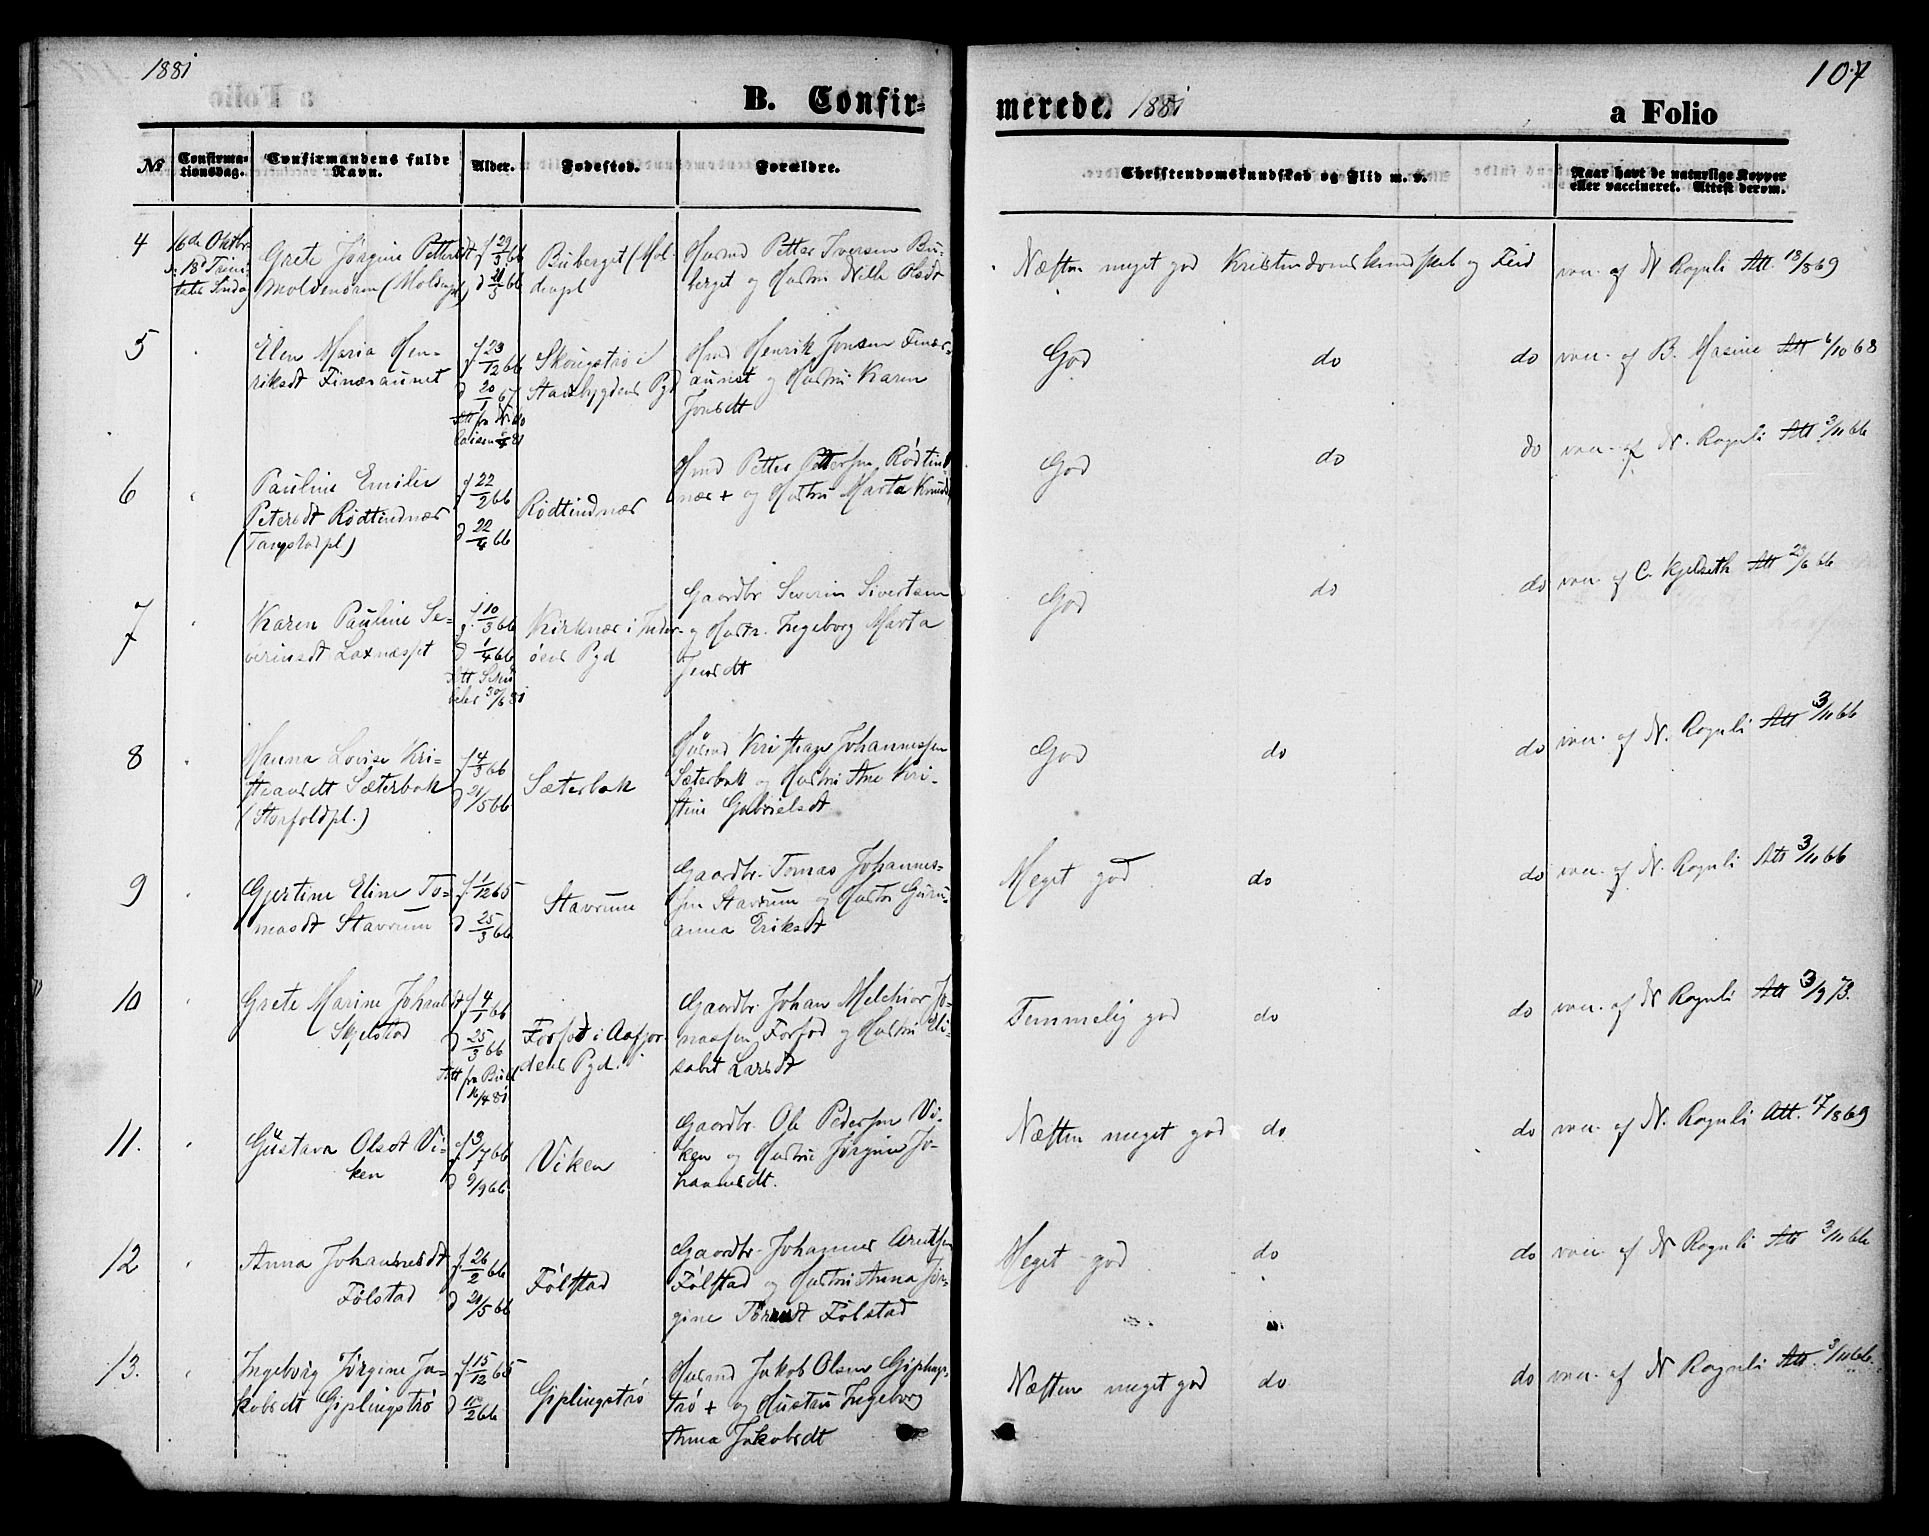 1881
107
B. Confir-
merede. 1881
a Folio
No
Confirma-
tionsdag.
Confirmandens fulde
Navn.
Alder.
Fødested.
Forældre.
Christendomskundskab og Flid m. v.
Naar havt de naturlige Kopper
eller vaccineret. Attest derom.
4
16de Oktbr
18de Trini
tatis Sondag
Grete Jørgine Pettersdt
Moldendren (Moldenpl)
f 29/3 66
d 21/5 66
Buberget (Mol-
denpl
Husmd Petter Iversen Bu-
berget og Hustru Nille Olsdt
Næsten meget god Kristendomskundskab og Flid
vacc. af N Rognli Att. 18/8 69
5
Elen Maria Hen-
riksdt Finæsaunet
f 23/12 66
d 20/1 67
81
Skougstrø i
Stadsbygdens Pgd
Hmd Henrik Jonsen Finæs-
aunet og Hustru Karen
Jonsdt
God do do
vacc. af B. Hasine Att 6/10 68
6
Pauline Emilie
Petersdt Rødtindnær
(Tangstadpl)
f 22/2 66
d 22/4 66
Rødtindnær
Hmd Petter Pettersen Rødtind
nær + og Hustru Marta Knudsdt
God do do
vacc. af N. Rognli Att 3/11 66
7
Karen Pauline Se-
verinsdt Laxnæsset
f. 10/3 66
d 1/4 66
Att
30/6 81
Kirknæs i Inder-
øens Pgd
Gaardbr Severin Sivertsen
og Hustr. Ingeborg Marta
Jensdt
God do do
vacc. af C. Kjelseth Att 29/6 66
8
Hanna Lovise Kri-
stiansdt Sæterbak
(Storfoldpl.)
f 4/3 66
d 21/5 66
Sæterbak
Husmd Kristian Johannessen
Sæterbak og Hustru Ane Kri-
stine Gabrielsdt
God do do
vacc. af N. Rognli Att 3/11 66
9
Gjertine Eline To-
masdt Stavrum
f. 1/12 65
d 25/3 66
Stavrum
Gaardbr. Tomas Johannes-
sen Stavrum og Hustru Guru
anna Eriksdt
Meget god do do
vacc. af N. Rognli Att 3/11 66
10
Grete Marine Johansdt
Skjelstad
f 4/1 66
d 25/3 66
Att fra
16/4 81
Forfod i Aafjor-
dens Pgd.
Gaardbr. Johan Melchior Jo-
nassen Forfod og Hustru Eli-
sabet Larsdt
Temmelig god do do
vacc. af N Rognli Att 3/9 73.
11.
Gustava Olsdt Vi-
ken
f. 3/7 66
d 9/9 66
Viken
Gaardbr. Ole Pedersen Vi-
ken og Hustru Jørgine Jo-
hannesdt.
Næsten meget god do do
vacc. af N. Rognli Att. 17/8 69
12
Anna Johannesdt
Følstad
f. 26/2 66
d 21/5 66
Følstad
Gaardbr. Johannes Arntsen
Følstad og Hustru Anna Jør-
gine Følstad
Meget god do do
vacc. af N Rognli Att 3/11 66
13.
Ingeborg Jørgine Ja-
kobsdt Giplingstrø
f. 15/12 65
d 18/2 66
Giplingstrø
Husmd Jakob Olsen Giplings-
trø + og Hustru Ingeborg
Anna Jakobsdt
Næsten meget god do do
vacc. af N Rognli Att. 3/11 66.